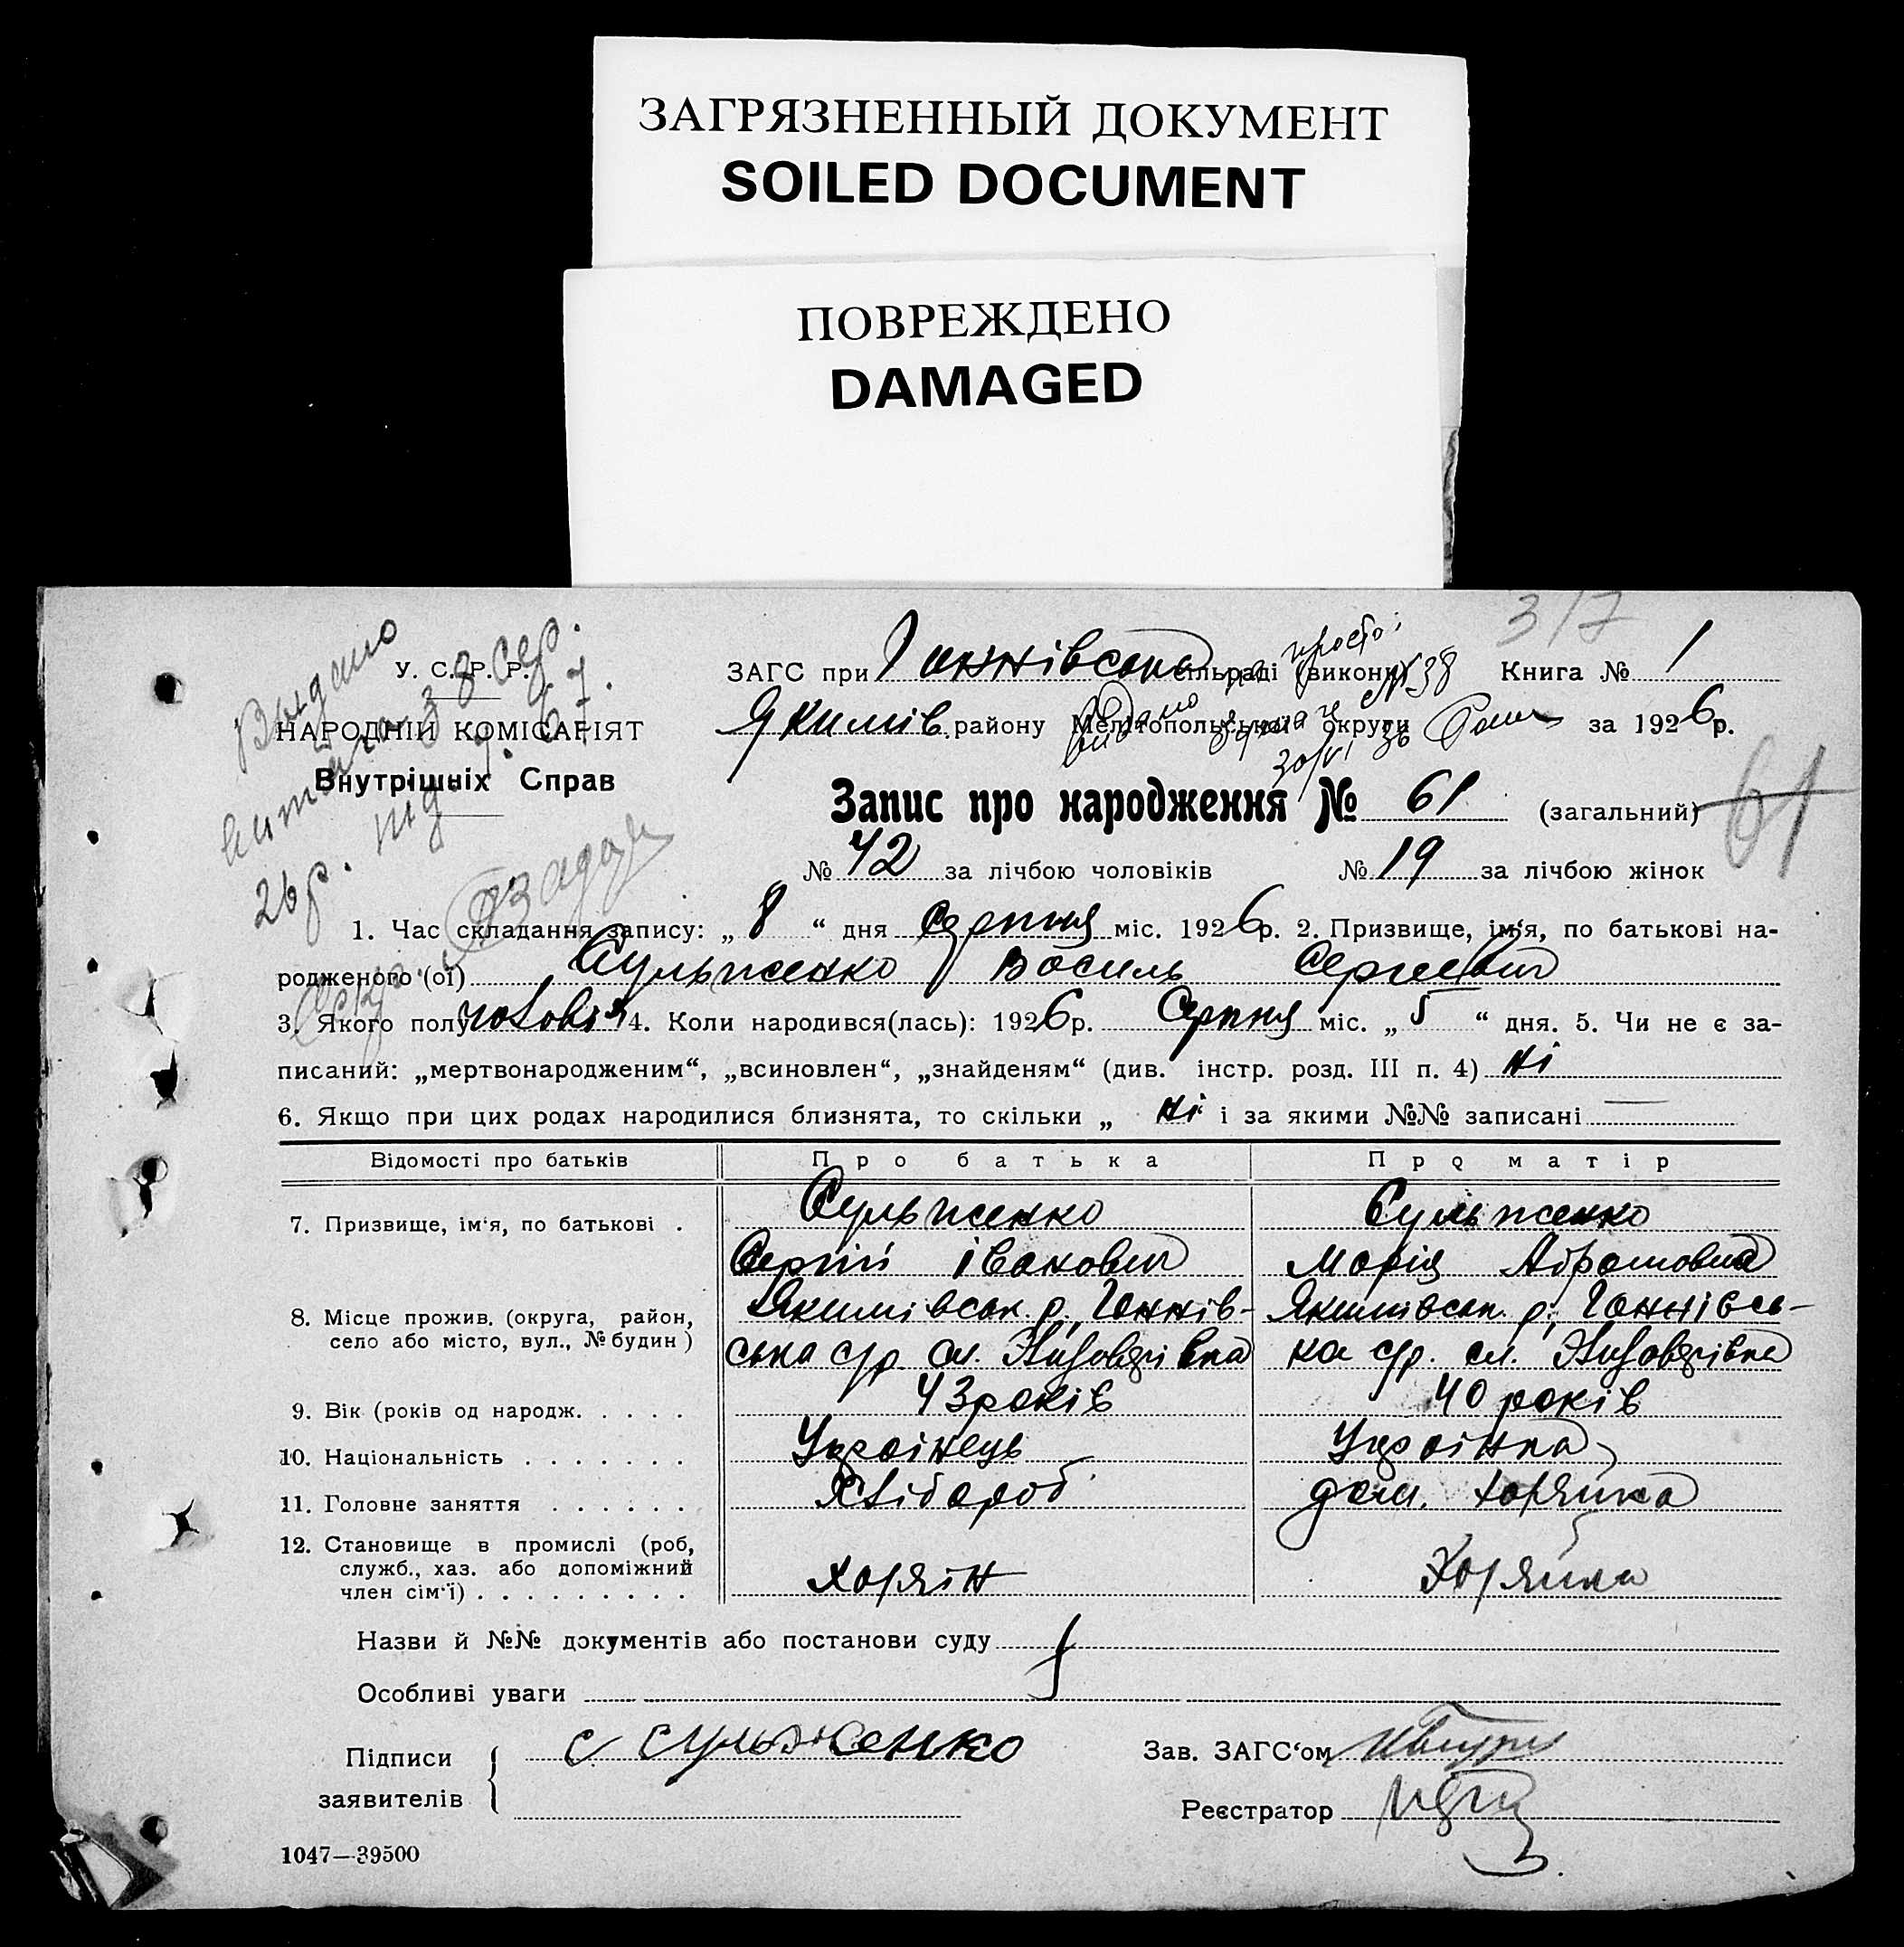 ЗАГРЯЗНЕННЫЙ ДОКУМЕНТ
SOILED DOCUMENT
ПОВРЕЖДЕНО
DAMAGED
317
У. С. Р. Р.
НАРОДНІЙ КОМІСАРІЯТ
Внутрішніх Справ
Выдано
26р.
ЗАГС при Ганнівська сільраді (викони) Книга № 1
Якимів. району Мелітопольської округи за 1926р.
№ 38
Запис про народження № 61 (загальний)
61
№ 42 за лічбою чоловіків № 19 за лічбою жінок
1. Час складання запису: „ 8 “ дня Серпня міс. 1926р. 2. Призвище, ім‘я, по батькові на-
родженого (ої) Сульженко Василь Сергиєвич
3. Якого полу чолові 4. Коли народився(лась): 1926р. Серпня міс. „ 5 “ дня. 5. Чи не є за-
писаний: „мертвонародженим“, „всиновлен“, „знайденям“ (див. інстр. розд. III п. 4) ні
6. Якщо при цих родах народилися близнята, то скільки „ ні і за якими №№ записані —
Відомості про батьків Про батька Про матір
7. Призвище, ім‘я, по батькові . Сульженко Сульженко
Сергій Іванович Марія Абрамовна
8. Місце прожив. (округа, район, Якимівськ. р, Ганнів- Якимівськ. р, Ганнівсь-
село або місто, вул., № будин ) ська с/р. сл. ка с/р. сл.
9. Вік (років од народж. . . . . 43 років 40 років
10. Національність . . . . . . . Українець Українка
11. Головне заняття . . . . . . Хлібороб дом. хозяйка
12. Становище в промислі (роб,
служб., хаз. або допоміжний
член сім‘ї) . . . . . . . . . хозяін Хозяйка
Назви й №№ документів або постанови суду
Особливі уваги
Підписи С. Сульженко Зав. ЗАГС‘ом
заявителів Реєстратор
1047—39500